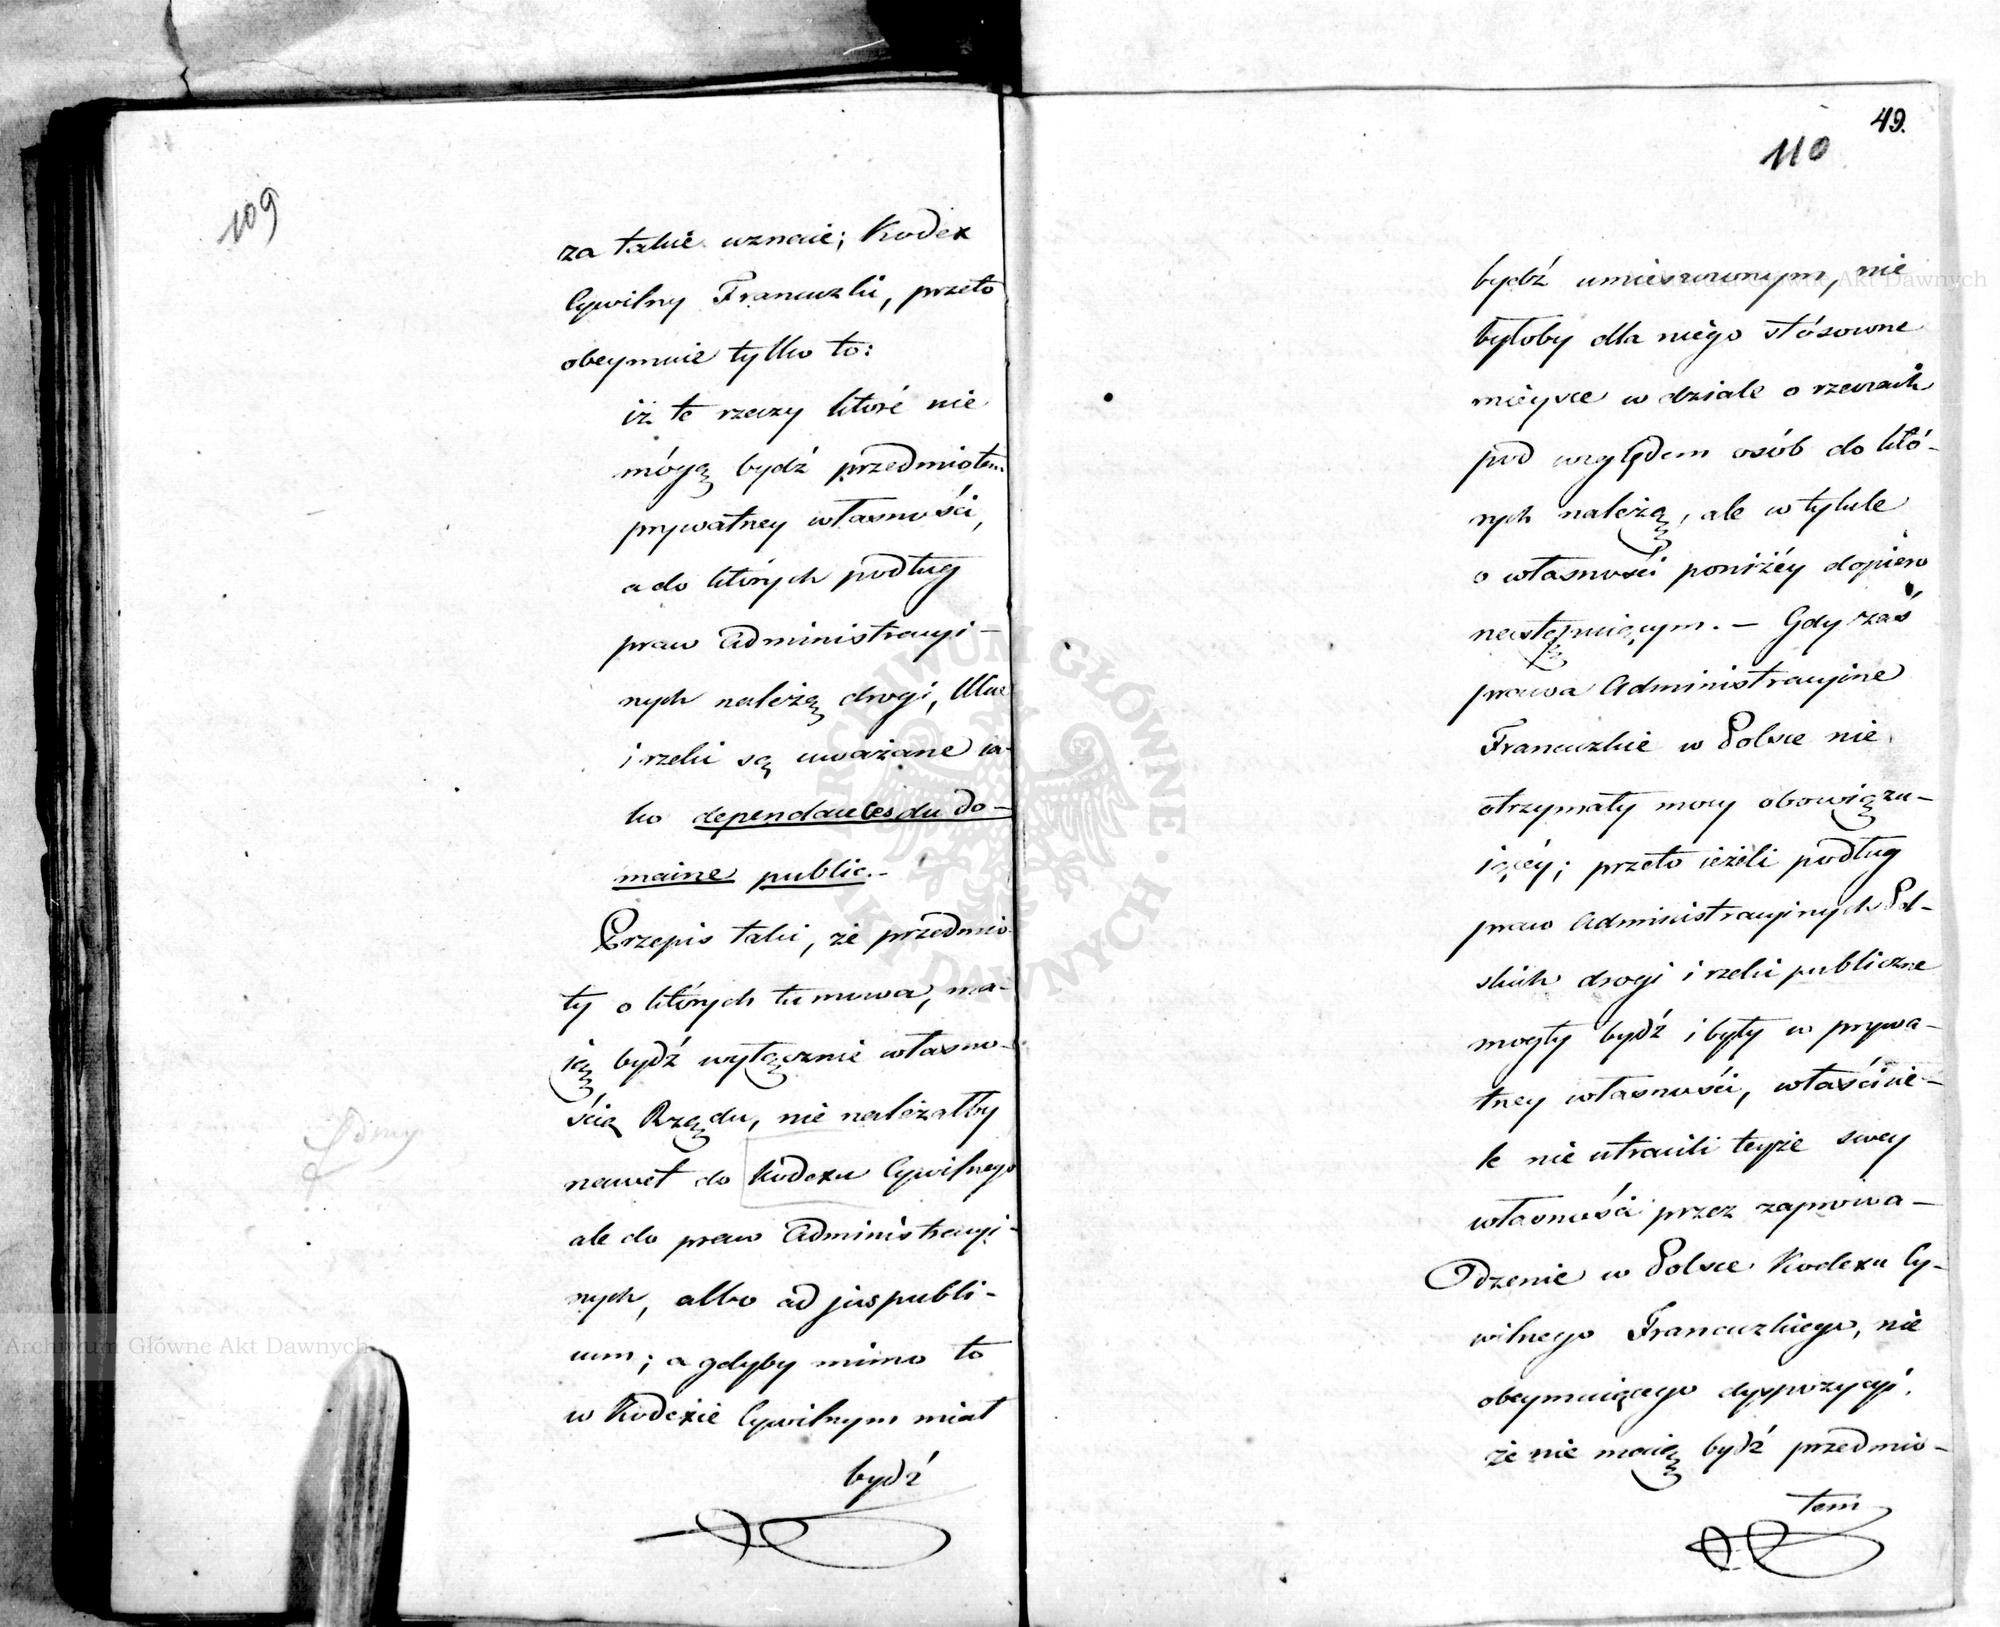 109
za takie uznaie; Kodex
Cywilny Francuzki, przeto
obeymuie tylko to:
iż te rzeczy które nie
mógą bydź przedmiotem
prywatney własności,
a do których podług
praw Administracyi-
nych należą drogi, Ulice
i rzeki są uważane ia-
ko dependances du do-
maine public.-
Przepis taki, że przedmio-
ty o których tu mowa, ma-
ią bydź wyłącznie własno-
ścią Rządu, nie należałby
nawet do Kodexu Cywilnego
ale do praw Administracyi-
nych, albo ad jus publi-
cum; a gdyby mimo to
w Kodexie Cywilnym miał
bydź
49.
110
bydź umieszczonym, nie
byłoby dla niego stósowne
mieysce w dziale o rzeczach
pod względem osób do któ-
rych należą, ale w tytule
o własności poniżéy dopiero
następuiącym. - Gdy zaś
prawa Administracyine
Francuzkie w Polsce nie
otrzymały mocy obowiązu-
iącéy; przeto ieżeli podług
praw Administracyinych Pol-
skich drogi i rzeki publiczne
mogły bydź i były w prywa-
tney własności, właścicie-
le nie utracili teyże swey
własności przez zaprowa-
dzenie w Polsce Kodexu Cy-
wilnego Francuzkiego, nie
obeymuiącego dyspozycyi,
że nie maią bydź przedmio-
tem
Archiwum Główne Akt Dawnych
Archiwum Główne Akt Dawnych
ARCHIWUM GŁÓWNE AKT DAWNYCH